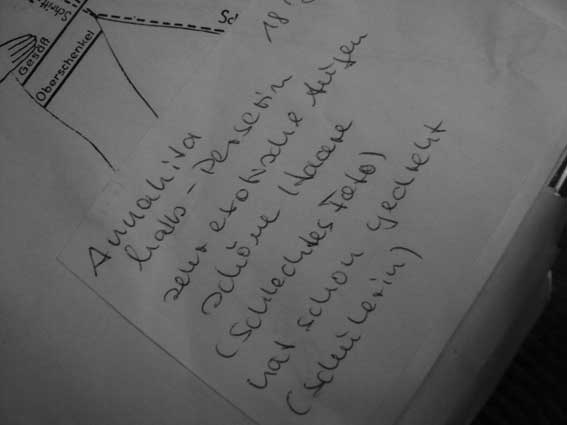 Schritt-
Gesäß
Oberschenkel
Sc
18
Annahita
halb-Perserin
sehr exotische Augen
schöne Haare
(Schlechtes Foto)
hat schon gedreht
(Schülerin)